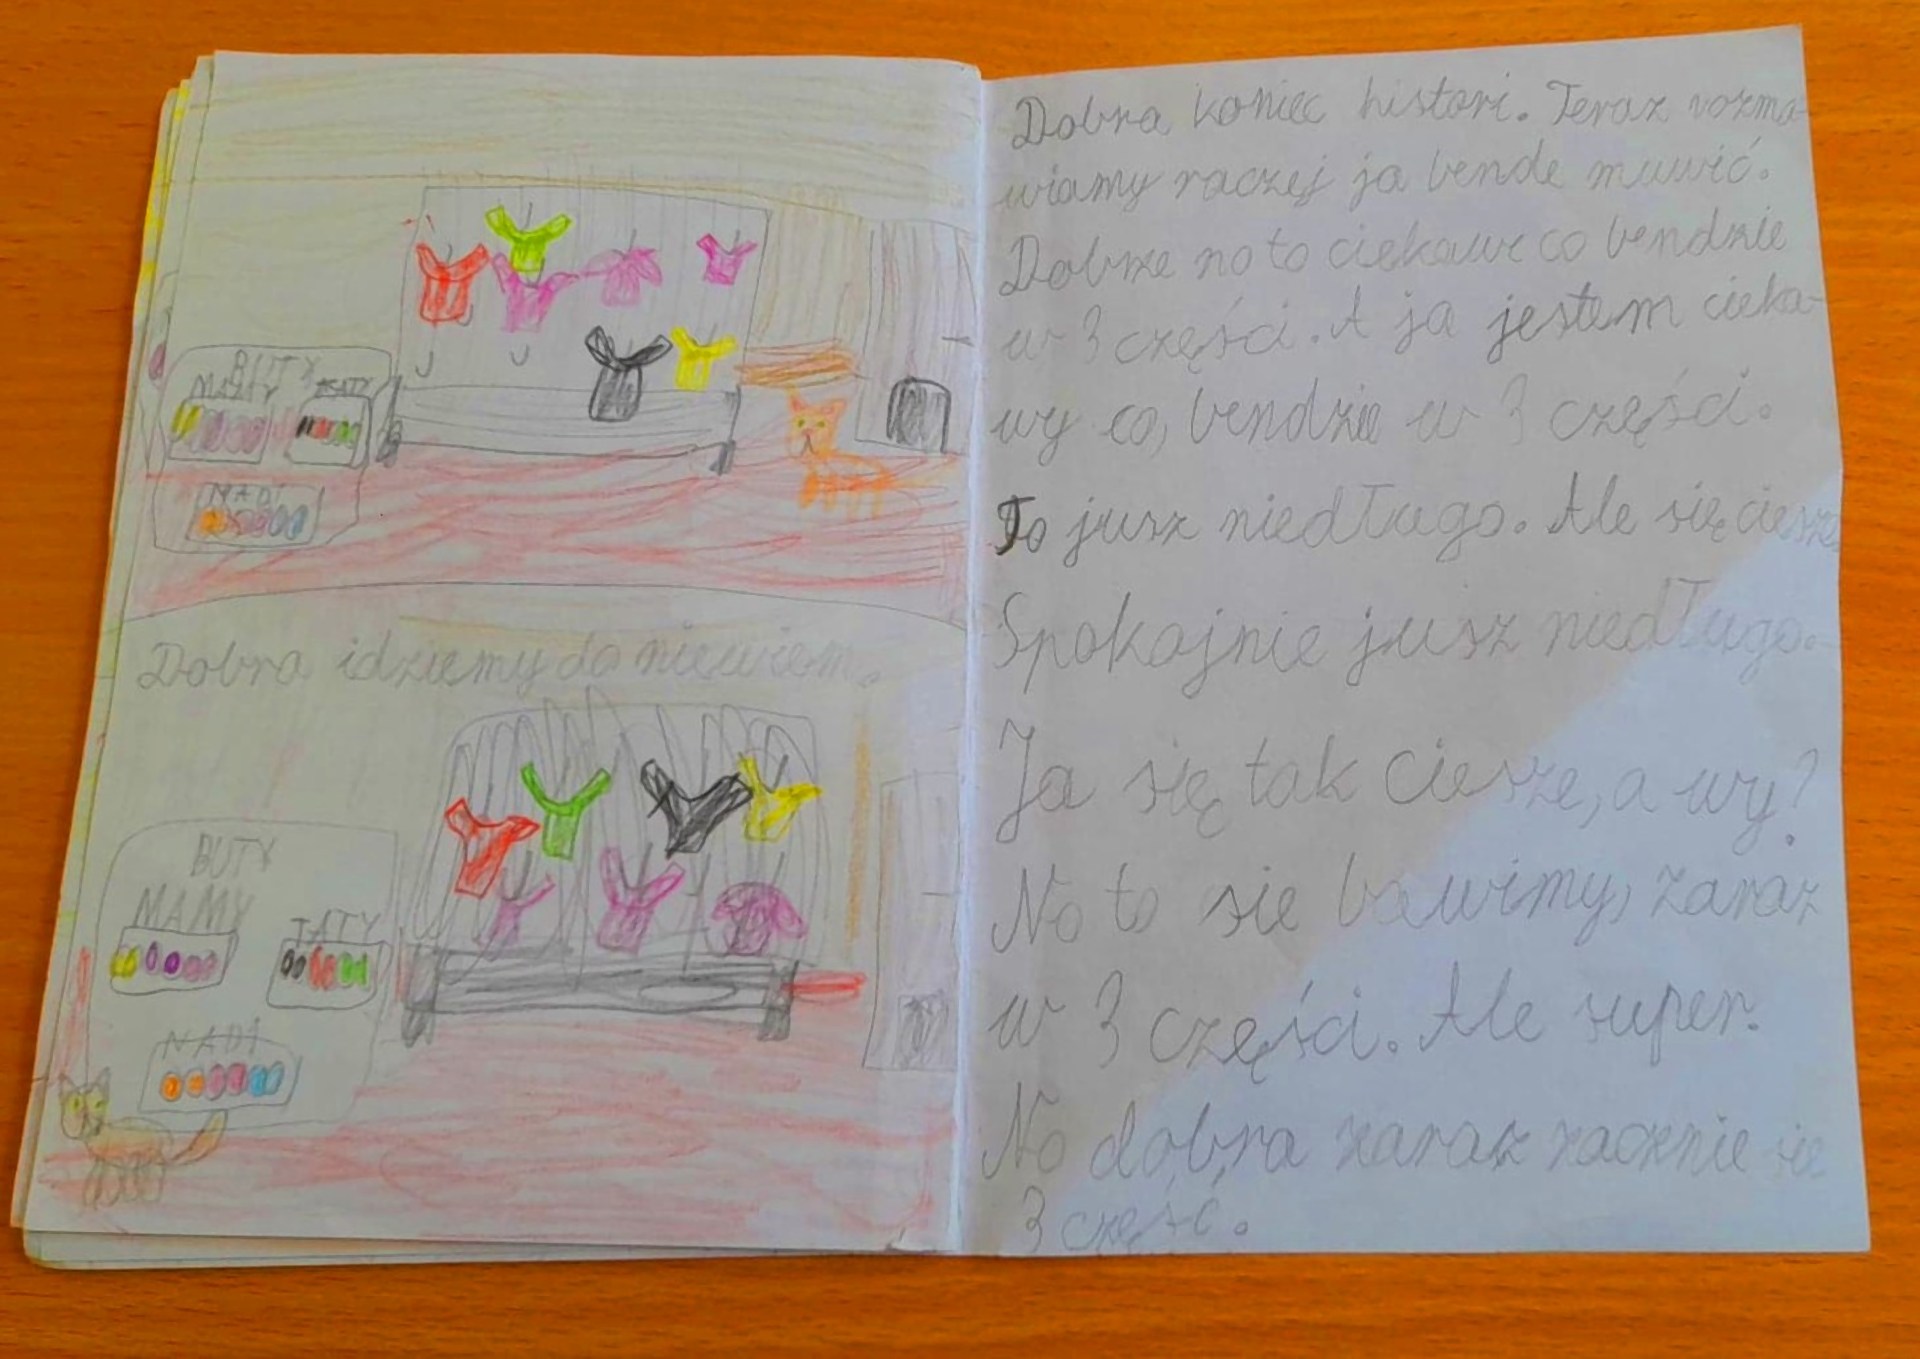 BUTY
MAMY TATY
NADI
Dobra idziemy do niewiem.
BUTY
MAMY
TATY
NADI
Dobra koniec histori. Teraz rozma-
wiamy raczej ja bende muwić.
Dobrze no to ciekawe co bendzie
w 3 części. A ja jestem cieka-
wy co, bendzie w 3 części.
To jusz niedługo. Ale się ciesze
Spokojnie jusz niedługo.
Ja się tak ciesze, a wy?
No to sie bawimy, zaraz
w 3 części. Ale super.
No dobra zaraz zacznie sie
3 część.